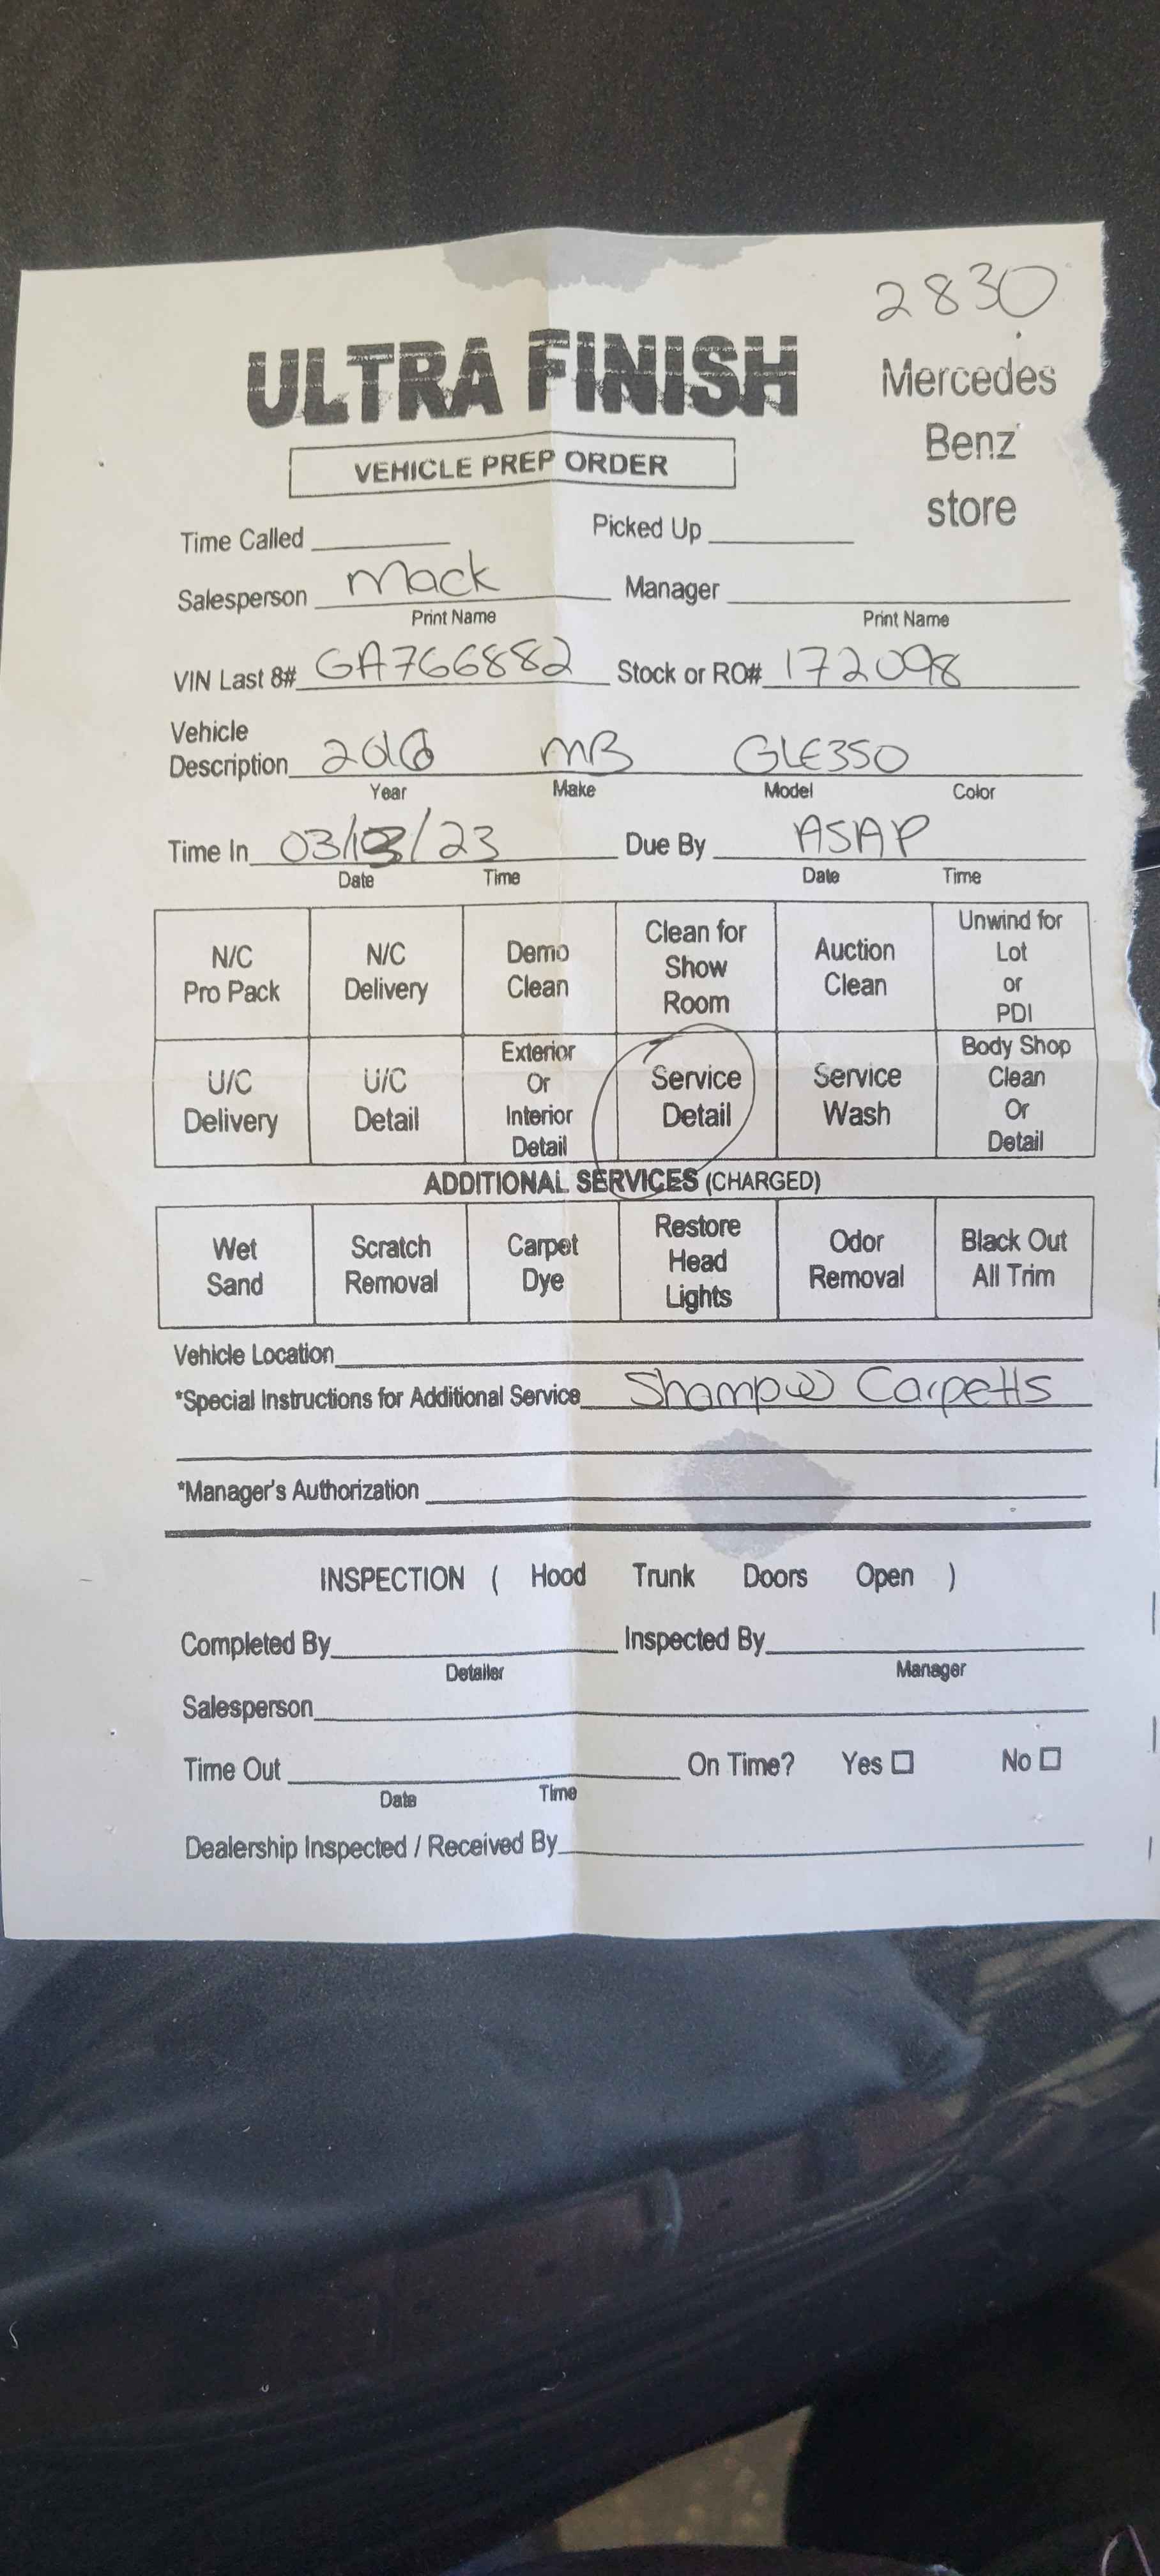 2830
ULTRA FINISH
Mercedes
Benz
store
VEHICLE PREP ORDER
Time Called Picked Up
Salesperson Mack Manager
Print Name Print Name
VIN Last 8# GA766882 Stock or RO# 172098
Vehicle
Description 2016 MB GLE350
Year Make Model Color
Time In 03/13/23 Due By ASAP
Date Time Date Time
N/C
Pro Pack
N/C
Delivery
Demo
Clean
Clean for
Show
Room
Auction
Clean
Unwind for
Lot
or
PDI
U/C
Delivery
U/C
Detail
Exterior
Or
Interior
Detail
Service
Detail
Service
Wash
Body Shop
Clean
Or
Detail
ADDITIONAL SERVICES (CHARGED)
Wet
Sand
Scratch
Removal
Carpet
Dye
Restore
Head
Lights
Odor
Removal
Black Out
All Trim
Vehicle Location
*Special Instructions for Additional Service Shampoo Carpetts
*Manager's Authorization
INSPECTION ( Hood Trunk Doors Open )
Completed By Inspected By
Detailer Manager
Salesperson
Time Out On Time? Yes ☐ No ☐
Date Time
Dealership Inspected / Received By